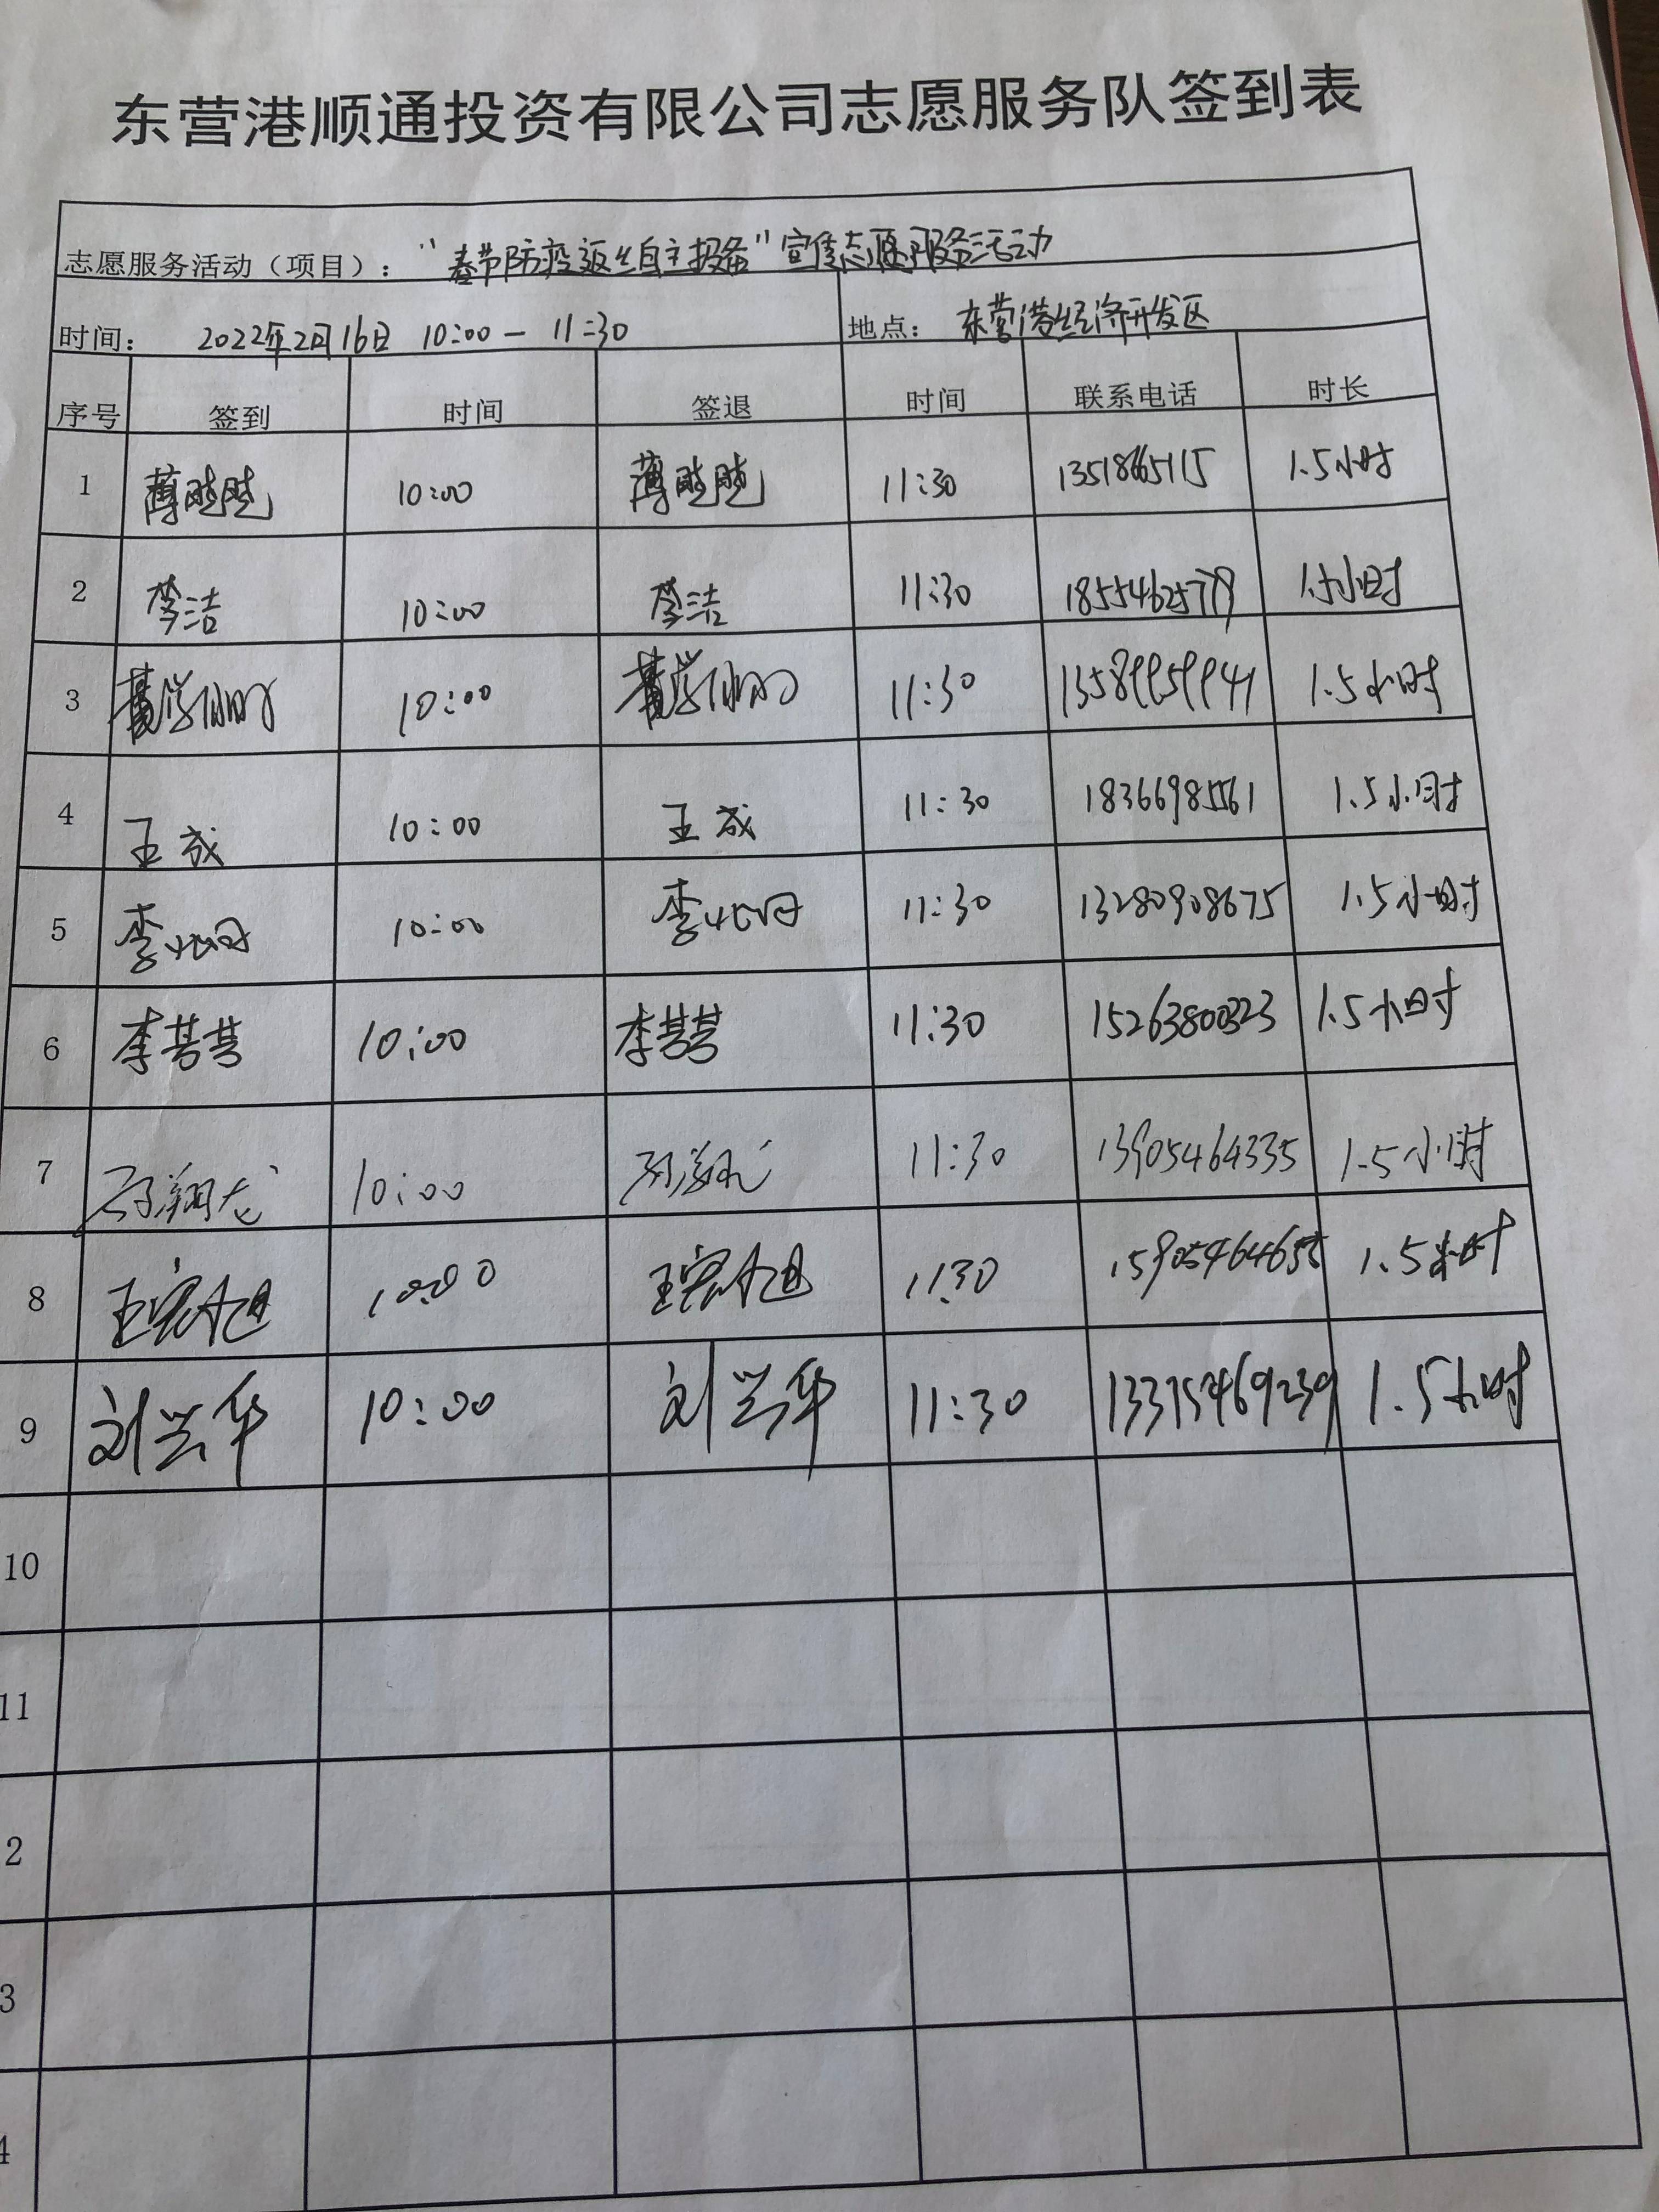 东营港顺通投资有限公司志愿服务队签到表
志愿服务活动（项目）： “春节防疫返乡自主报备”宣传志愿服务活动
时间： 2022年2月16日 10:00－11:30 地点： 东营港经济开发区
序号 签到 时间 签退 时间 联系电话 时长
1 薄 10:00 薄 11:30 1.5小时
2 李洁 10:00 李洁 11:30 1.5小时
3 10:00 11:30 13589959941 1.5小时
4 王成 10:00 王成 11:30 1.5小时
5 李 10:00 李 11:30 13280908675 1.5小时
6 李芸芸 10:00 李芸芸 11:30 15263800323 1.5小时
7 孙翔龙 10:00 孙翔龙 11:30 13905464335 1.5小时
8 王 10:00 王 11:30 15905464655 1.5小时
9 刘兴华 10:00 刘兴华 11:30 13375469239 1.5小时
10
11
2
3
4